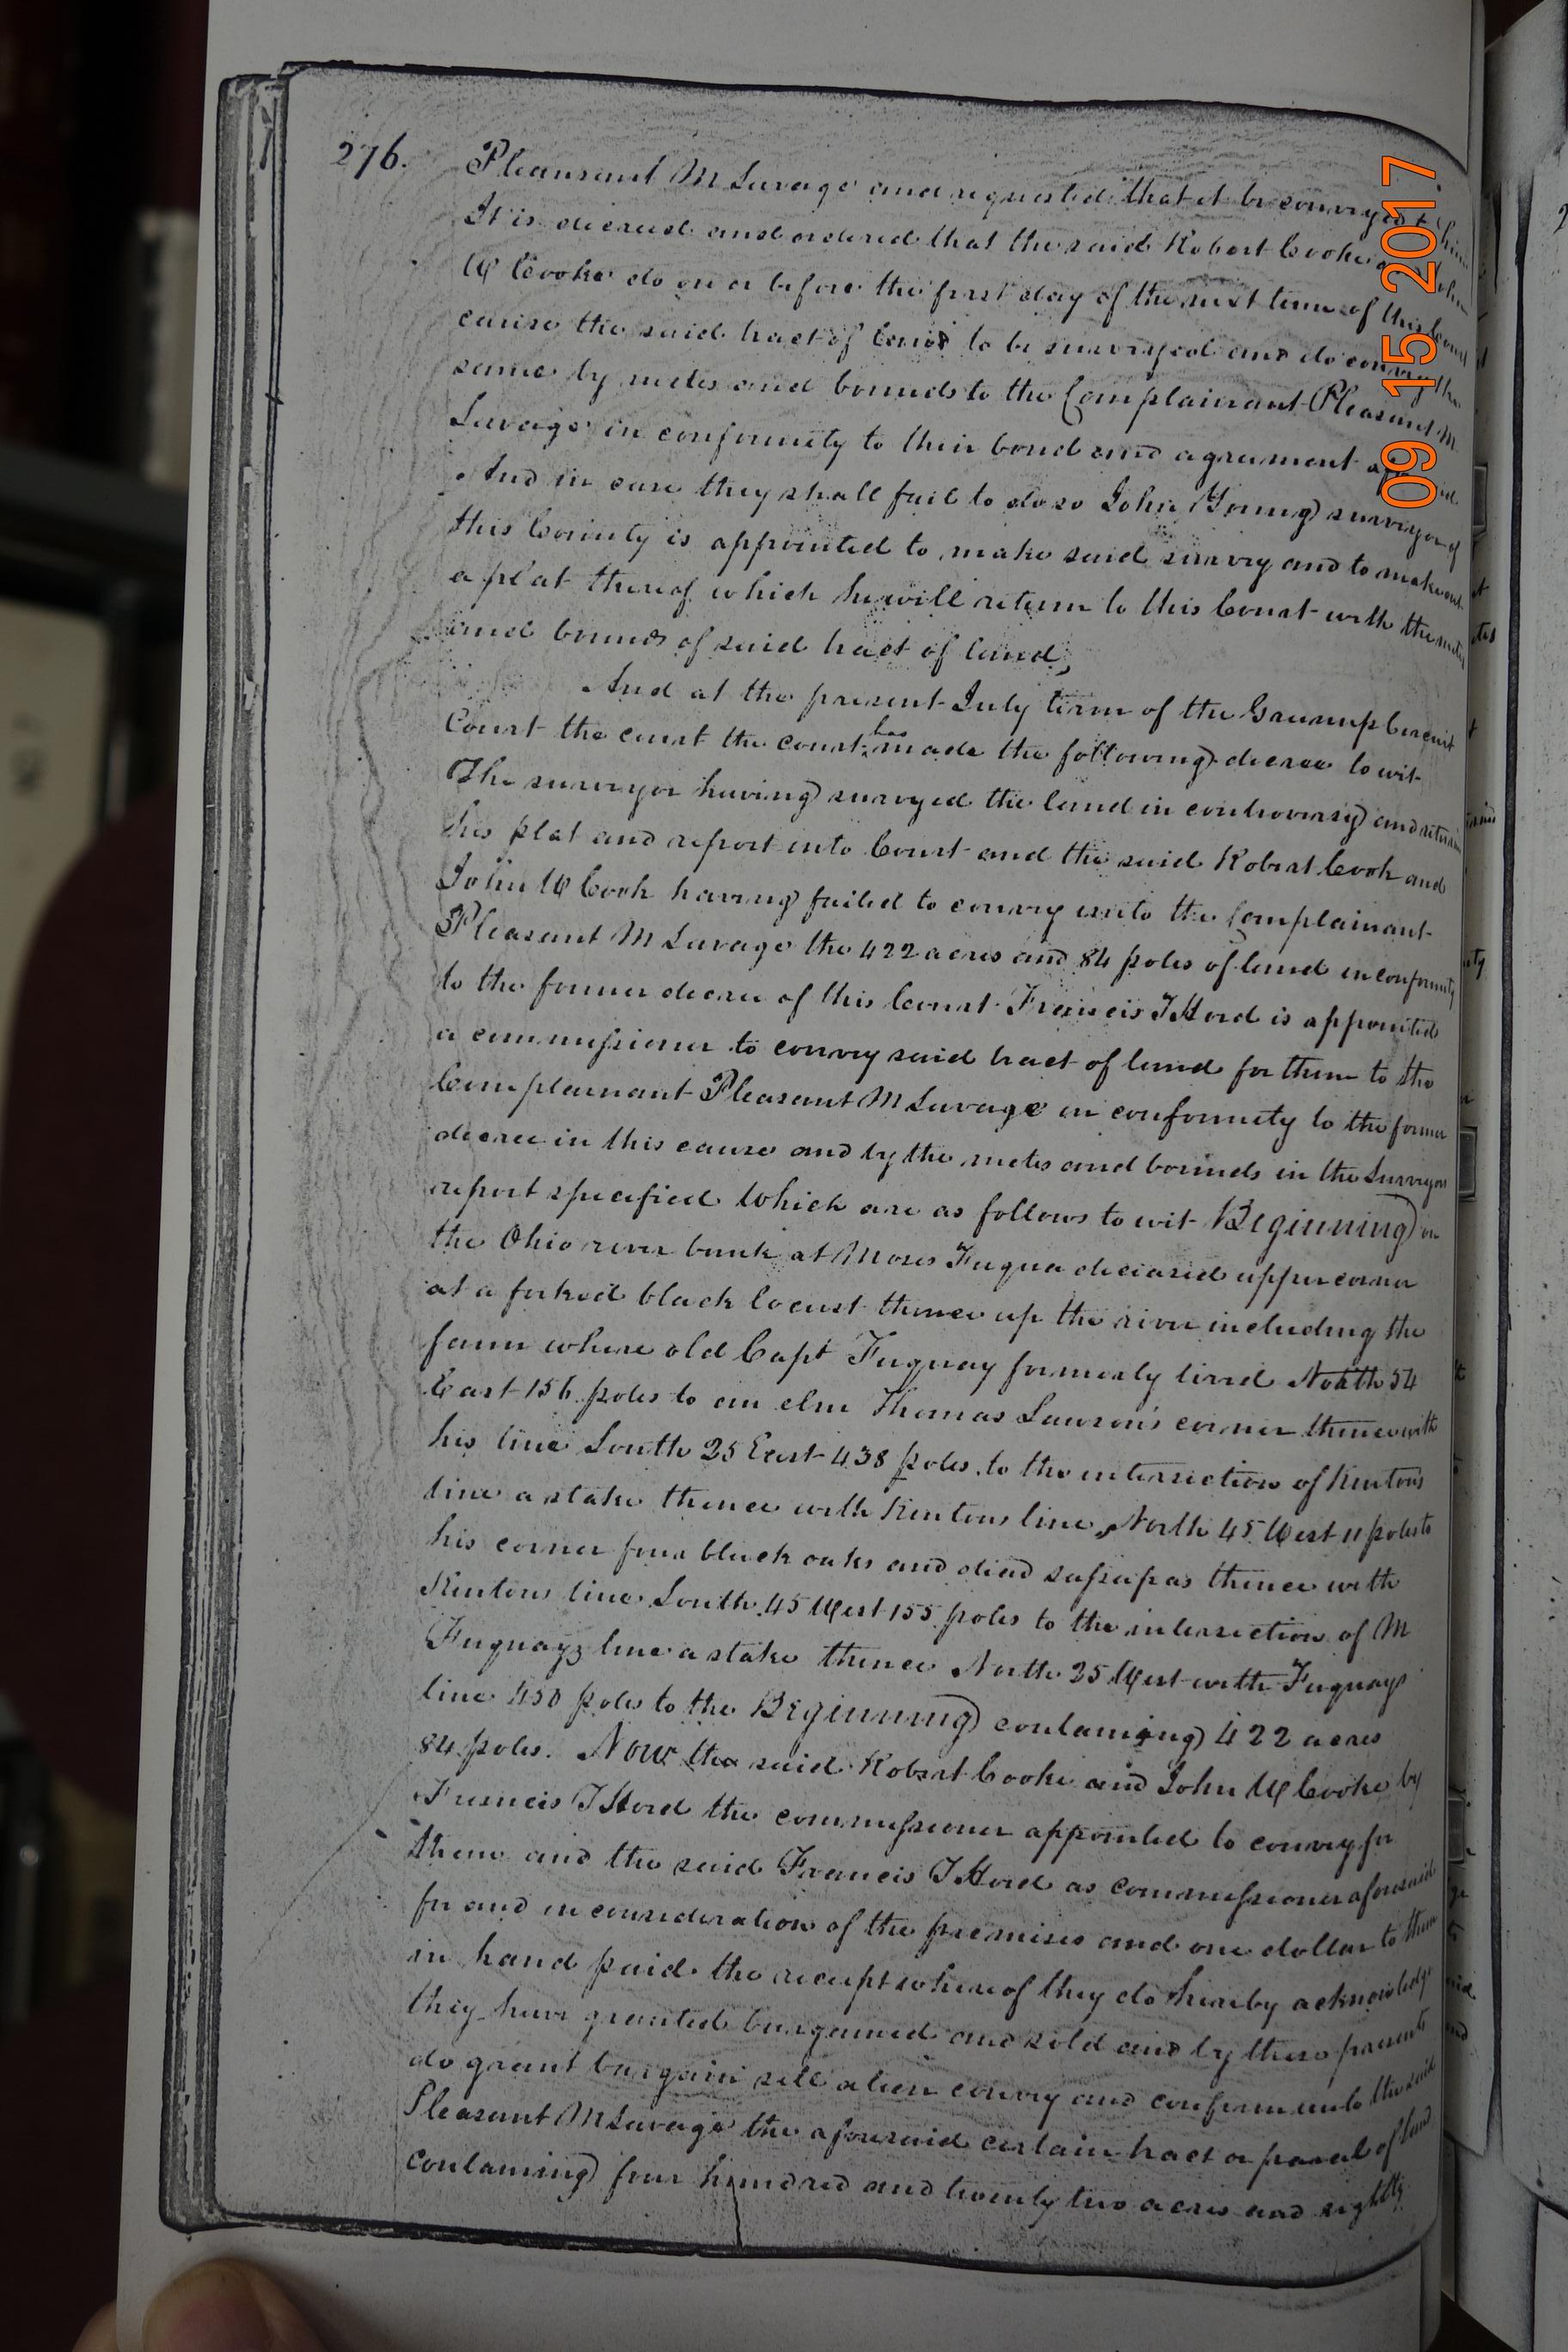 276.
Pleansant M Savage and requested that it be conveyed to him
It is decreed and ordered that the said Robert Cooke John
W Cooke do on or before the first day of the next term of this Court
cause the said tract of land to be surveyed and do convey the
same by metes and bounds to the Complainant Pleasant M
Savage in conformity to their bond and agreement
And in case they shall fail to do so John Young surveyor of
this County is appointed to make said survey and to make out
a plat thereof which he will return to this Court with the metes
and bounds of said tract of land,
And at the present July term of the Greenup Circuit
Court the court the court has made the following decree to wit
The surveyor having surveyed the land in controversy and return
his plat and report into Court and the said Robert Cook and
John W Cook having failed to convey unto the Complainant
Pleasant M Savage the 422 acres and 84 poles of land in conformity
to the former decree of this Court Francis T Hord is appointed
a commissioner to convey said tract of land for them to the
Complainant Pleasant M Savage in conformity to the former
decree in this cause and by the metes and bounds in the Surveyors
report specified Which are as follows to wit Beginning on
the Ohio river bank at Moses Fuqua deceased upper corner
at a forked black locust thence up the river including the
farm where old Capt Fuquay formerly lived North 54
East 156 poles to an elm Thomas Lawson's corner thence with
his line South 25 East 438 poles to the intersection of Kentons
line a stake thence with Kentons line North 45 West 11 poles to
his corner four black oaks and dead sassafras thence with
Kentons line South 45 West 155 poles to the intersection of M
Fuquays line a stake thence North 25 West with Fuquays
line 450 poles to the Beginning containing 422 acres
84 poles. Now the said Robert Cooke and John W Cooke by
Francis T Hord the commissioner appointed to convey for
them and the said Francis T Hord as commissioner aforesaid
for and in consideration of the premises and one dollar to them
in hand paid the receipt whereof they do hereby acknowledge
they have granted bargained and sold and by these presents
do grant bargain sell alien convey and confirm unto the said
Pleasant M Savage the aforesaid certain tract or parcel of land
containing four hundred and twenty two acres and eighty
09 15 2017